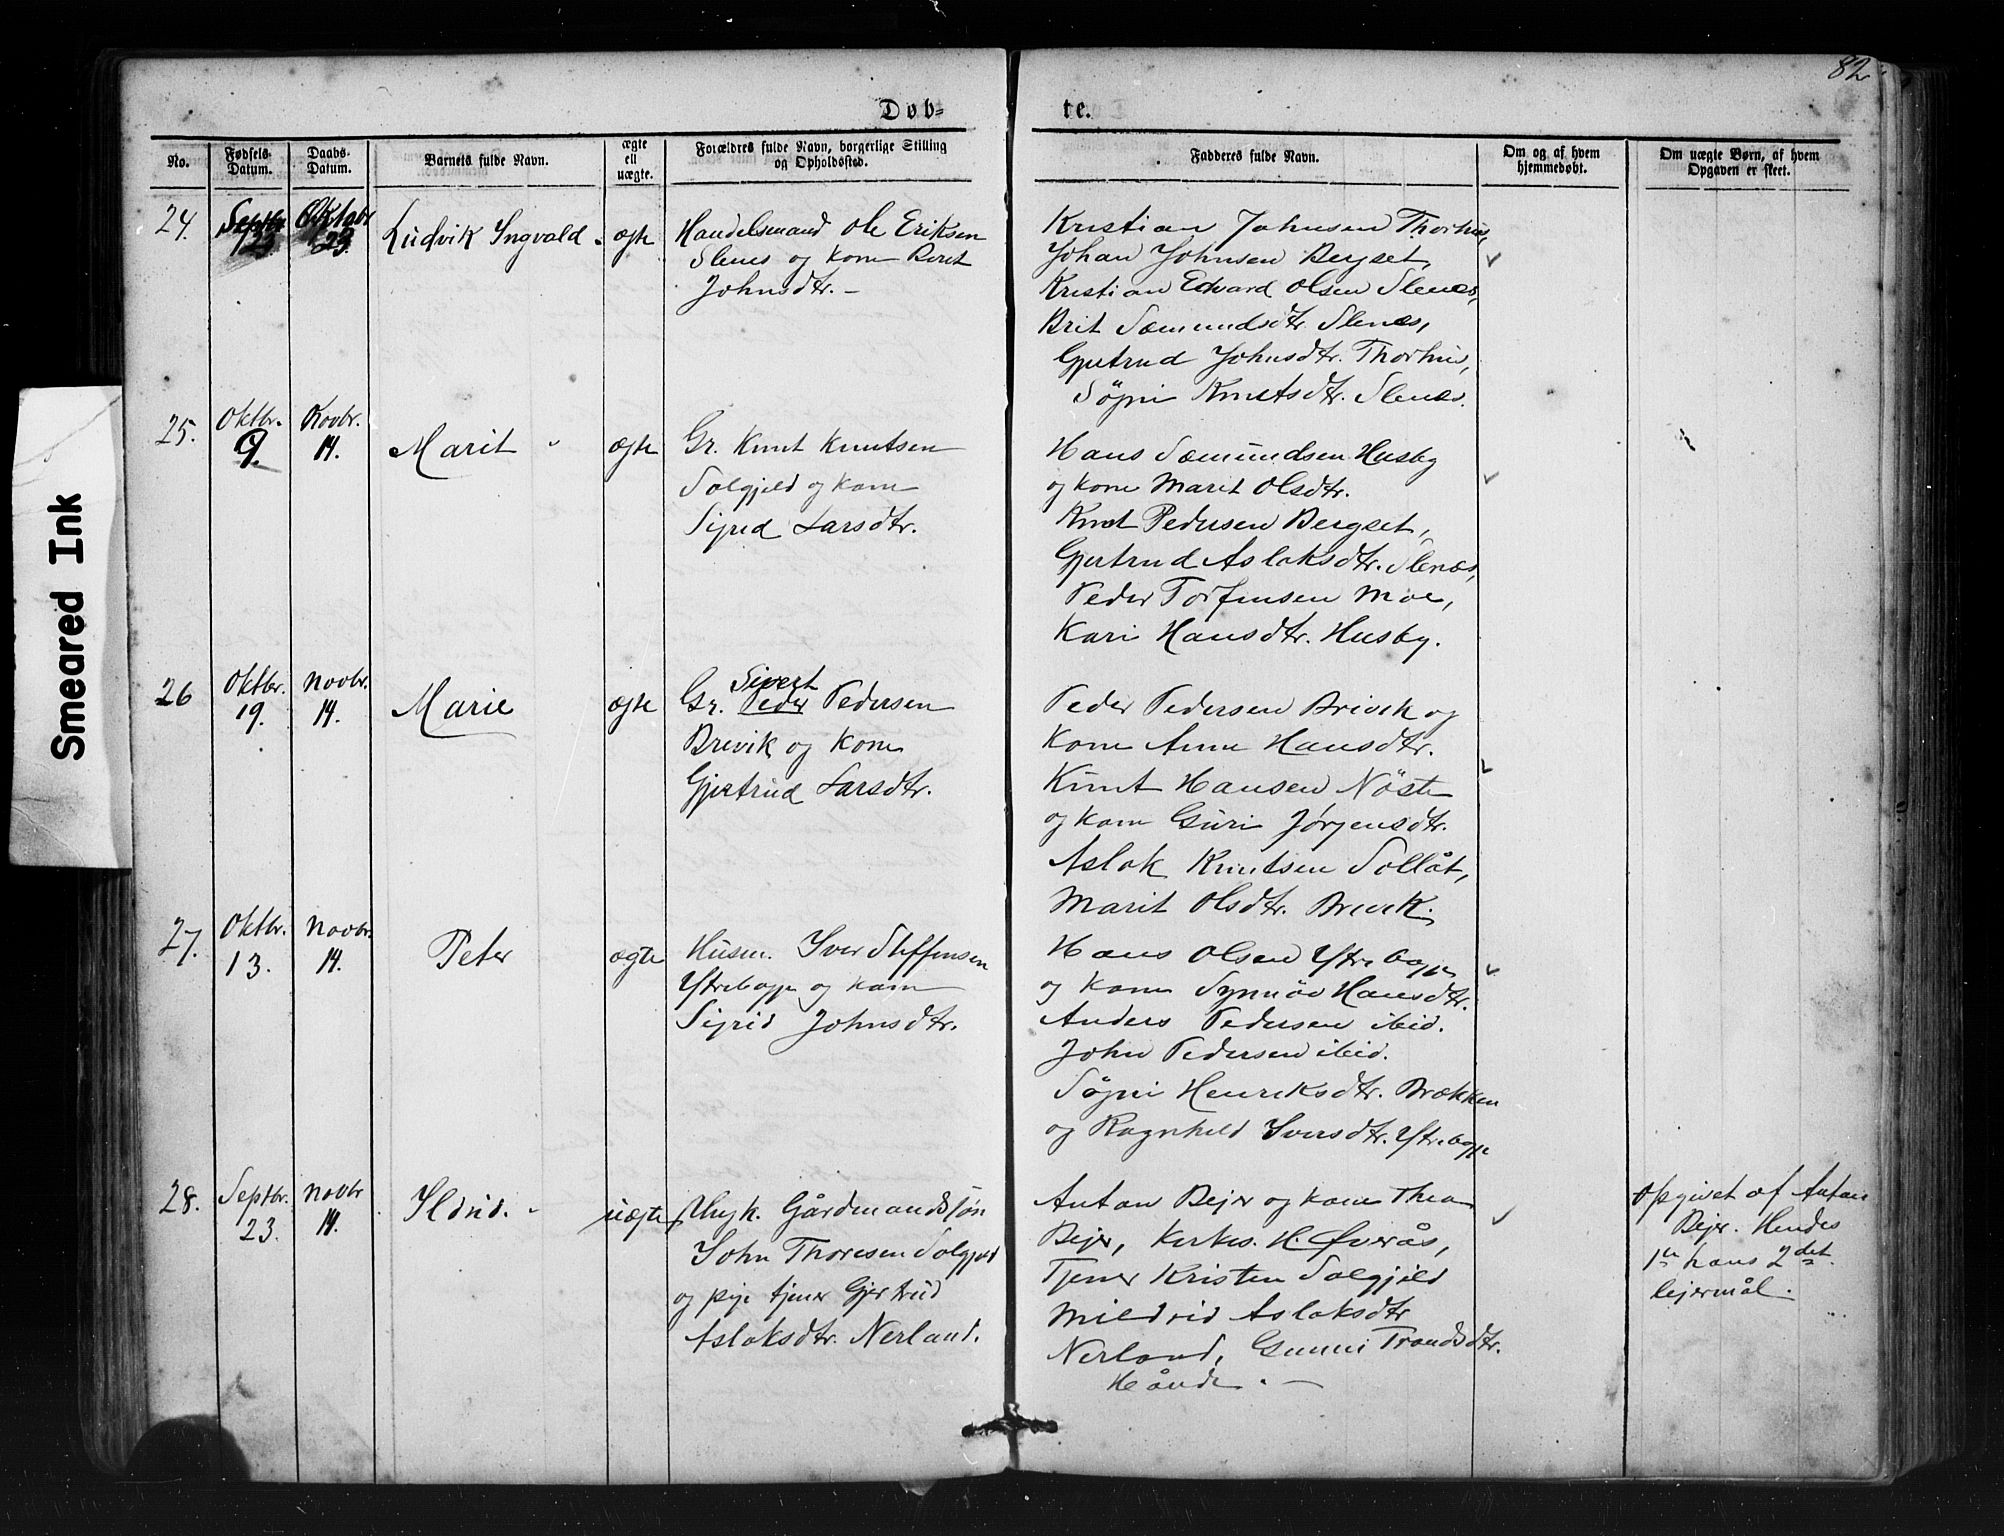 82
Døb-
te.
No.
Fødsels-
Datum.
Daabs-
Datum.
Barnets fulde Navn.
ægte
ell
uægte.
Forældres fulde Navn, borgerlige Stilling
og Opholdssted.
Fadderes fulde Navn.
Om og af hvem
hjemmedøbt.
Om uægte Børn, af hvem
Opgaven er skeet.
24.
Septbr
23.
Oktobr
23.
Ludvik Ingvald
ægte
Handelsmand Ole Eriksen
Slenes og kone Beret
Johnsdtr. –
Kristian Johnsen Thorhus,
Johan Johnsen Bergset,
Kristian Edvard Olsen Slenæs,
Brit Sæmundsdtr Slenæs,
Gjertrud Johnsdtr. Thorhus,
Søgni Knutsdtr. Slenæs.
25.
Oktbr.
9.
Novbr.
14.
Marit
ægte
Gr. Knut Knutsen
Solgjeld og kone
Sigrid Larsdtr.
Hans Sæmundsen Husby
og kone Marit Olsdtr.
Knut Pedersen Bergset,
Gjertrud Aslaksdtr. Slenæs,
Peder Torfinsen Moe,
Kari Hansdtr. Husby.
26
Oktbr.
19.
Novbr.
14.
Marie
ægte
Sivert
Gr. Peder Pedersen
Brevik og kone
Gjertrud Larsdtr.
Peder Pedersen Brivik og
kone Anne Hansdtr.
Knut Hansen Nöste
og kone Guri Jørgensdtr.
Aslak Knudsen Sollåt,
Marit Olsdtr. Brevik.
27.
Oktbr.
13.
Novbr.
14.
Peter
ægte
Husm. Iver Steffensen
Ytrebogge og kone
Sigrid Johnsdtr.
Hans Olsen Ytrebogge
og kone Synnöv Hansdtr.
Anders Pedersen ibid.
John Pedersen ibid.
Søgni Henriksdtr. Brækken
og Ragnhild Iversdtr. Ytrebogge
28.
Septbr.
23.
Novbr
14.
Ildrid.
uægte
Ungk. Gårdmandssøn
John Thoresen Solgjeld
og pige tjener Gjertrud
Aslaksdtr. Nerland.
Anton Bejer og kone Thea
Bejer, Kirkes. H. Øverås,
Tjener Kristen Solgjeld
Mildrid Aslaksdtr
Nerland, Gunni Trondsdtr.
Hånde. –
Opgivet af Anton
Bejer. Hendes
1ste hans 2det
lejermål.
Smeared Ink